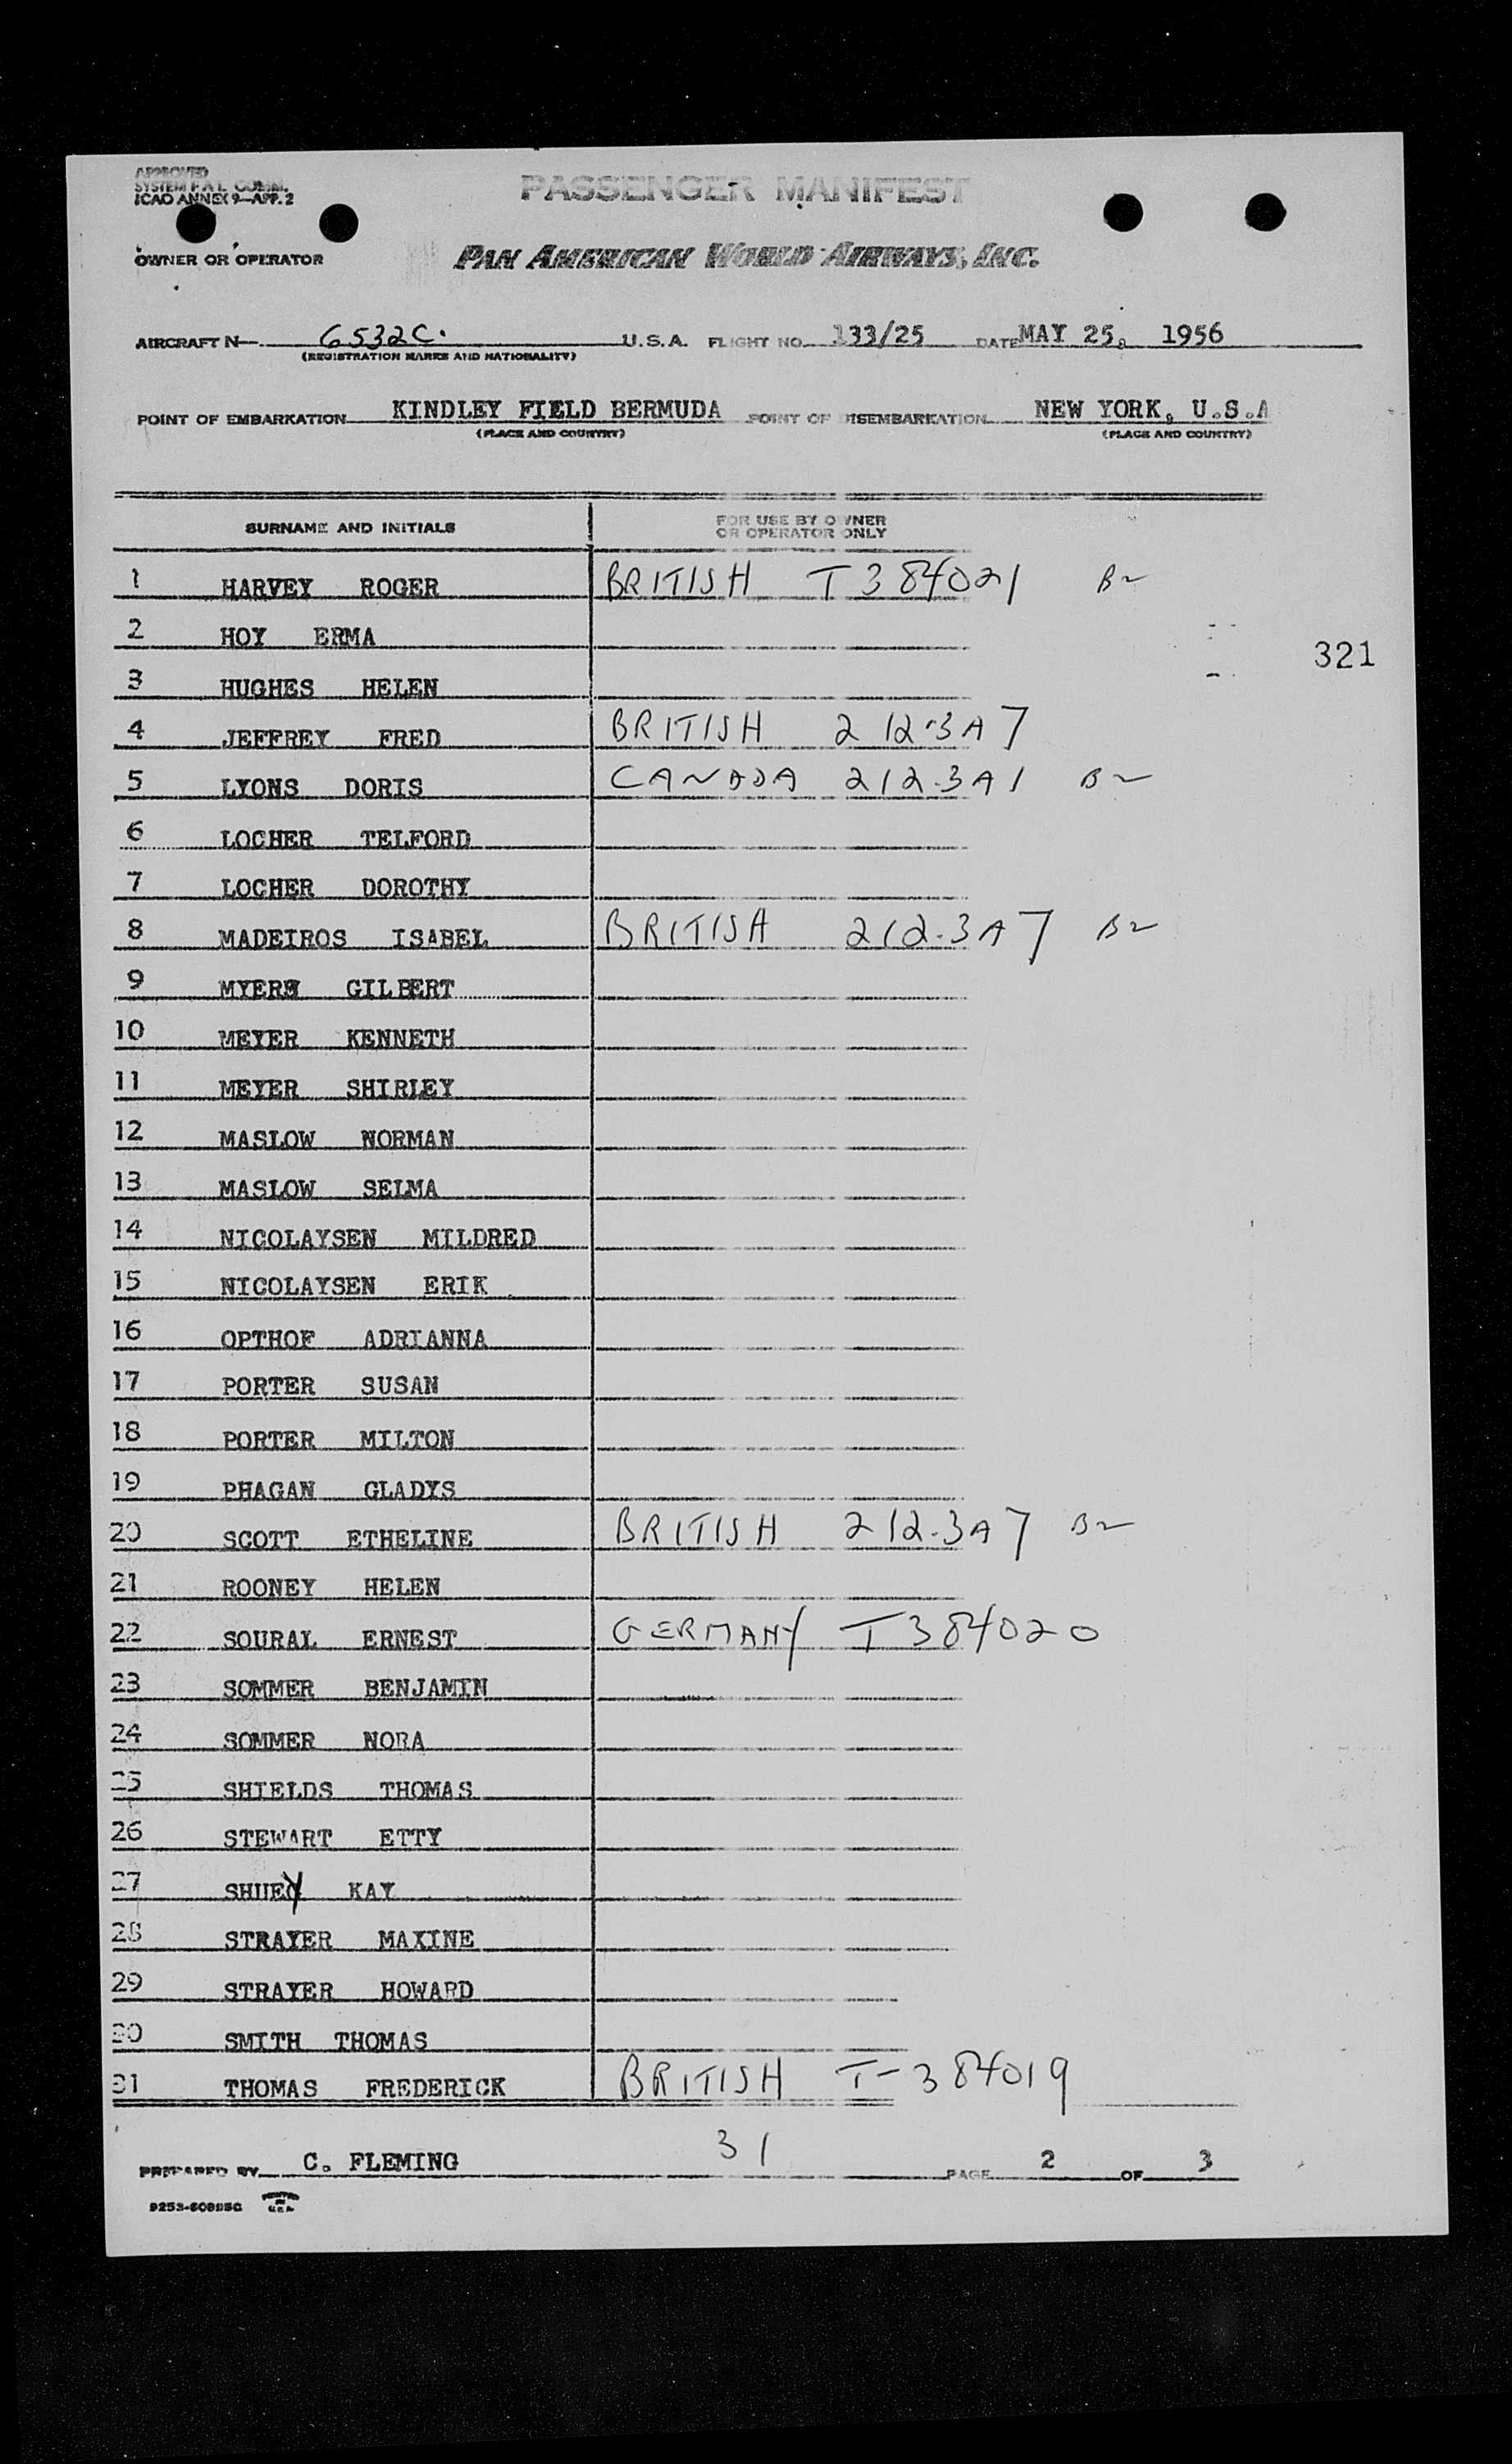 APPROVED
SYSTEM F.A.L. COMM.
ICAO ANNEX 9—APP. 2
PASSENGER MANIFEST
OWNER OR OPERATOR PAN AMERICAN WORLD AIRWAYS, INC.
AIRCRAFT N— 6532C. U.S.A. FLIGHT NO. 133/25 DATE MAY 25, 1956
(REGISTRATION MARKS AND NATIONALITY)
POINT OF EMBARKATION KINDLEY FIELD BERMUDA POINT OF DISEMBARKATION NEW YORK, U.S.A
(PLACE AND COUNTRY) (PLACE AND COUNTRY)
SURNAME AND INITIALS FOR USE BY OWNER
OR OPERATOR ONLY
1 HARVEY ROGER BRITISH T384021 B2
2 HOY ERMA
321
3 HUGHES HELEN
4 JEFFREY FRED BRITISH 212.3A7
5 LYONS DORIS CANADA 212.3A1 B2
6 LOCHER TELFORD
7 LOCHER DOROTHY
8 MADEIROS ISABEL BRITISH 212.3A7 B2
9 MYERS GILBERT
10 MEYER KENNETH
11 MEYER SHIRLEY
12 MASLOW NORMAN
13 MASLOW SELMA
14 NICOLAYSEN MILDRED
15 NICOLAYSEN ERIK
16 OPTHOF ADRIANNA
17 PORTER SUSAN
18 PORTER MILTON
19 PHAGAN GLADYS
20 SCOTT ETHELINE BRITISH 212.3A7 B2
21 ROONEY HELEN
22 SOURAL ERNEST GERMANY T384020
23 SOMMER BENJAMIN
24 SOMMER NORA
25 SHIELDS THOMAS
26 STEWART ETTY
27 SHUEY KAY
28 STRAYER MAXINE
29 STRAYER HOWARD
30 SMITH THOMAS
31 THOMAS FREDERICK BRITISH T-384019
31
PREPARED BY C. FLEMING PAGE 2 OF 3
PRINTED
IN
U.S.A.